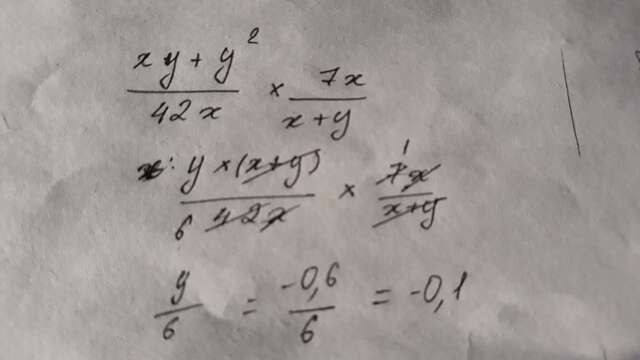 xy+y² / 42x × 7x / x+y
y×(x+y) / 6 42x × 1 7x / x+y
y / 6 = -0,6 / 6 = -0,1